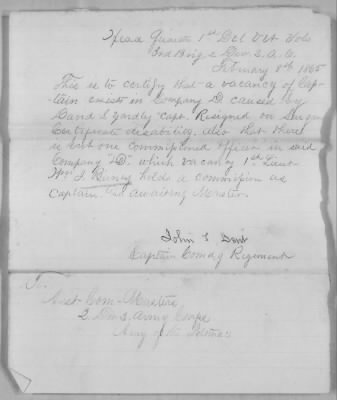 Head Quarters 1st Del Vet Vols
3rd Brig 2 Div 2. A. C.
February 8th 1865
This is to certify that a vacancy of Cap-
tain exists in Company D caused by
Cand I yardly Capt. Resigned on Surgeons
Certificate disability, also that there
is but one commissioned Officer in said
Company "D". which vacancy 1st Lieut
Wm J. Birney holds a commission as
Captain and awaiting Muster.
John T Dent
Captain Comdg Regiment
To
Asst Com. Mustere
2. Div 2. Army Corps
Army of the Potomac